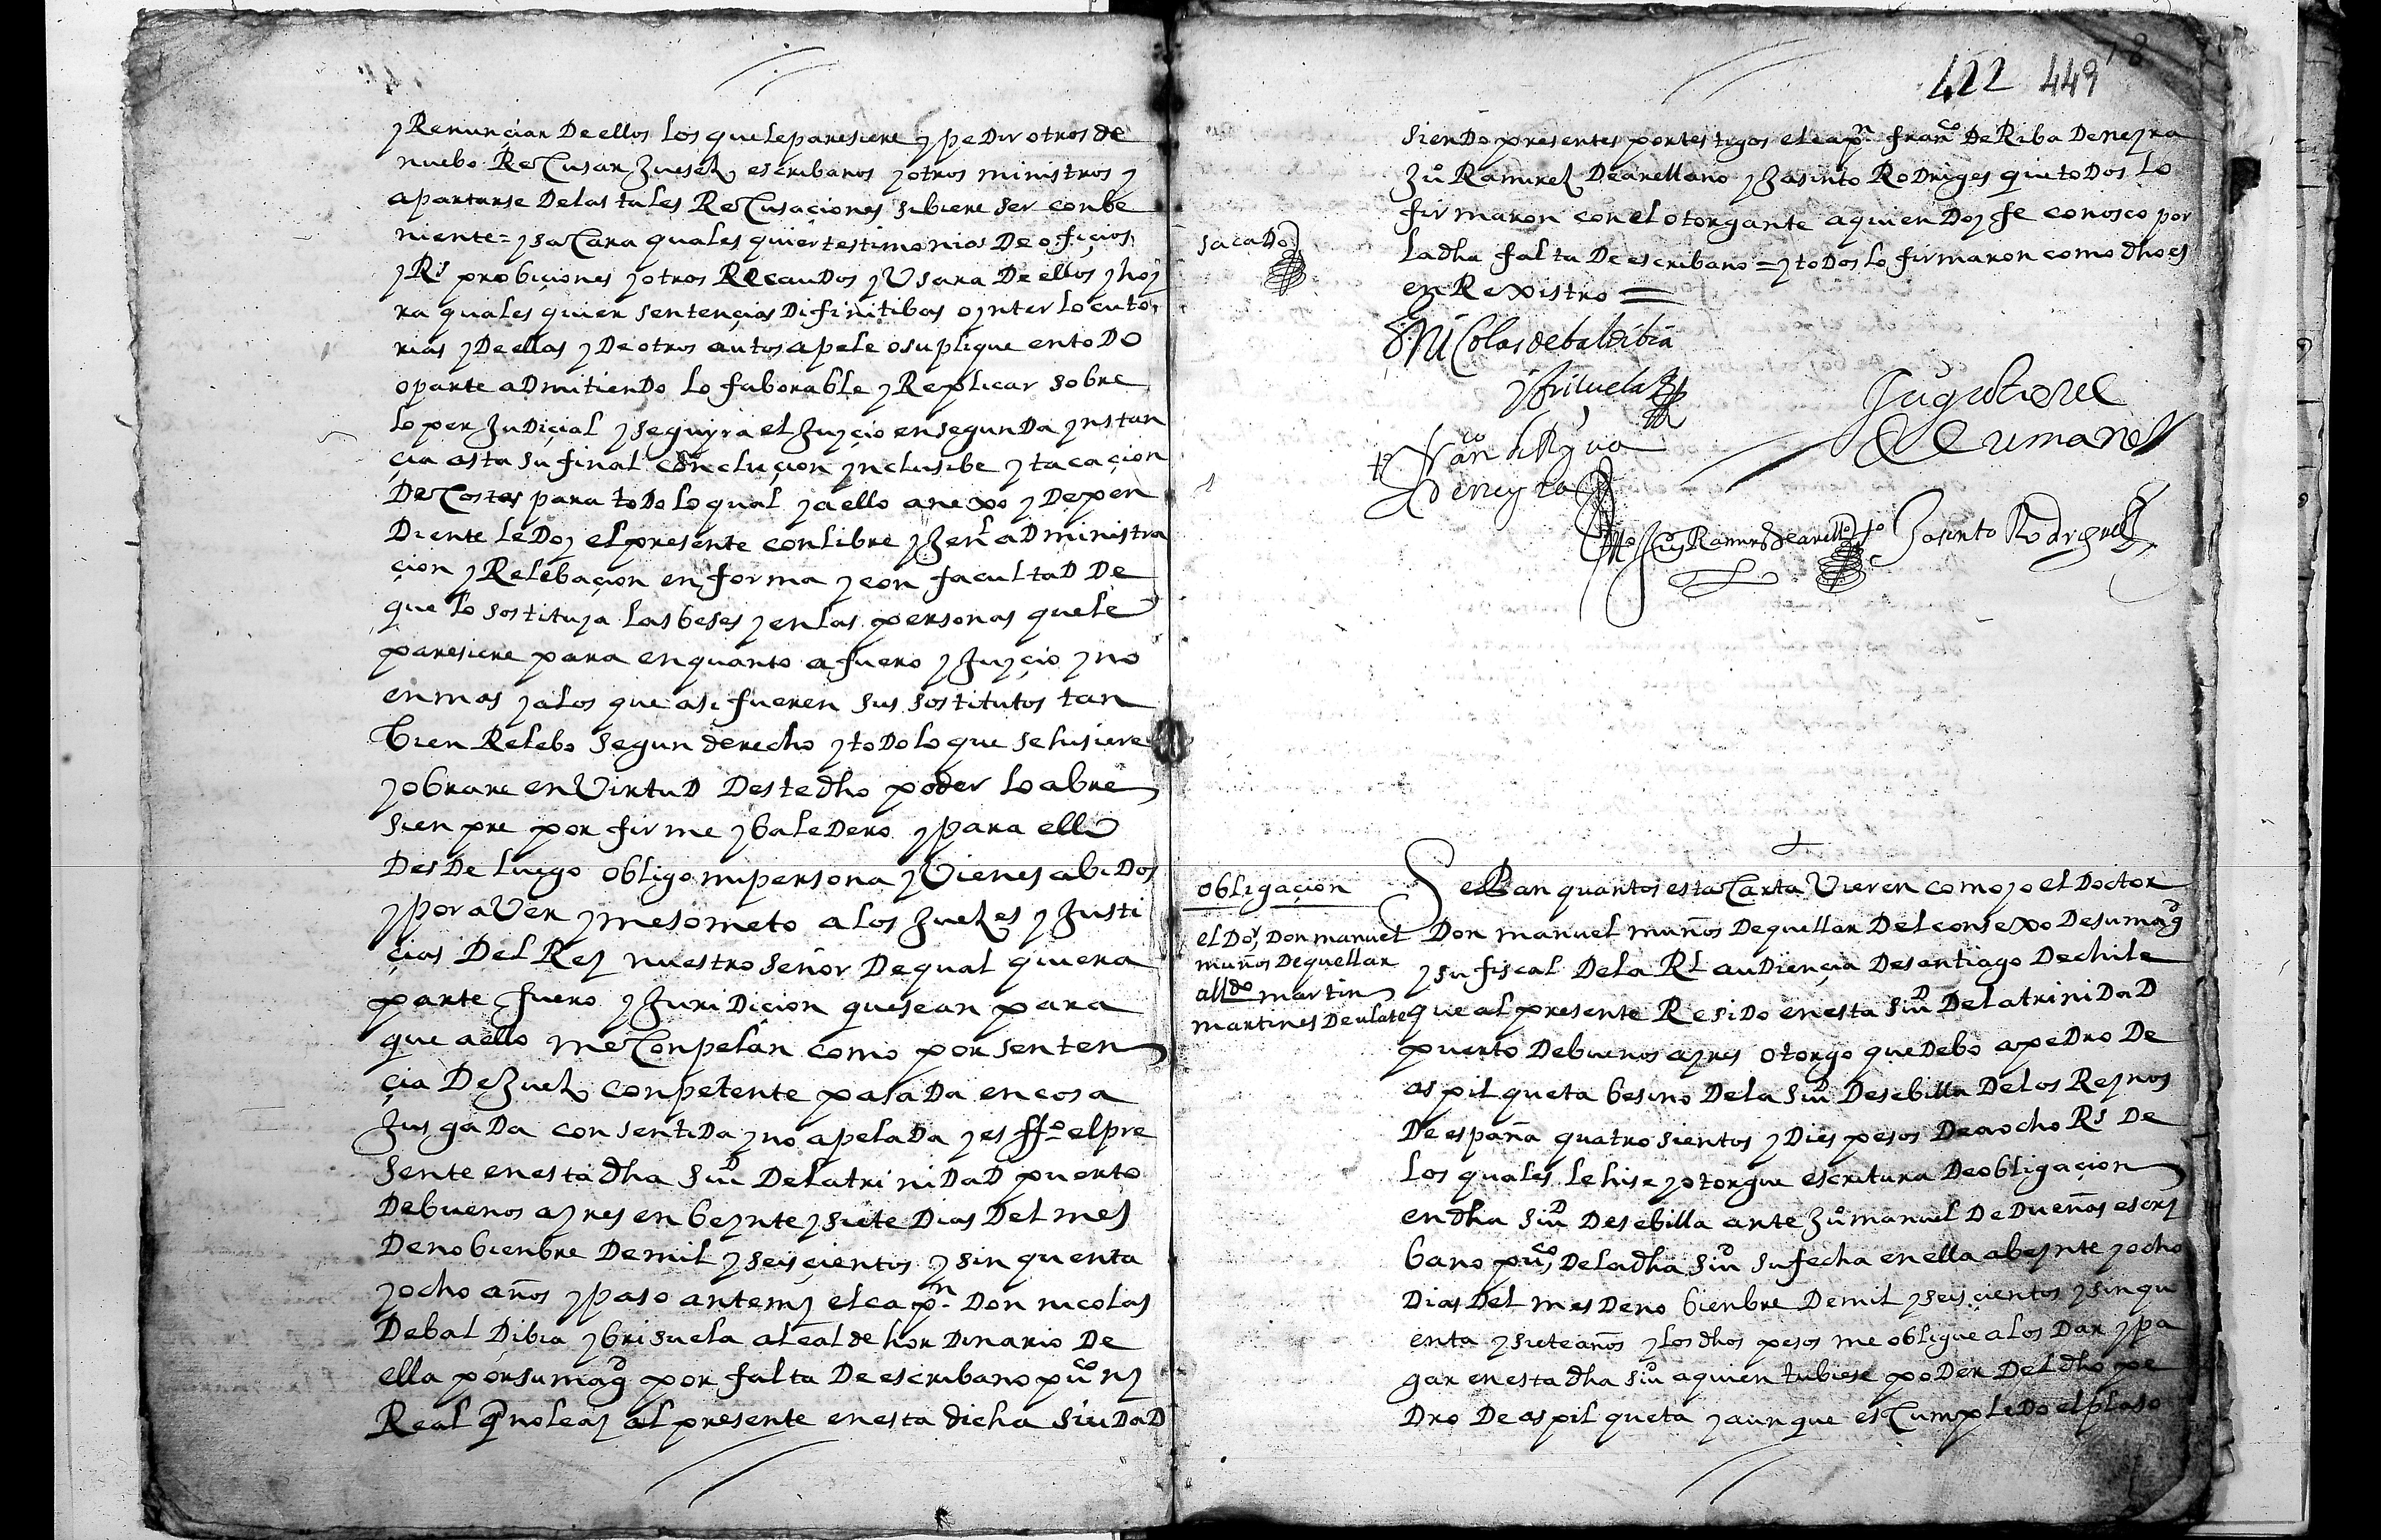 y Renunçiar De ellos los que le paresiere y peDir otros de
nuebo ReCusar Jueses escribanos y otros ministros y
apartarse De las tales ReCusaçiones si biere ser conbe
niente = y saCara quales quier testimonios De ofiçios
y Rs probiçiones y otros RecauDos y Usara De ellos y hoy
ra quales quier sentençias Difinitibas o ynterlocuto
rias y De ellas y De otros autos apele o suplique en toDo
o parte aDmitienDo lo faborable y Replicar sobre
lo perJuDiçial y seguyra el Juyçio en segunDa ynstan
çia asta su final conclucion ynclusibe y tacaçion
De Costas para toDo lo qual y a ello anexo y Depen
Diente le Doy el presente con libre y Jenl aDministra
çion y Relebaçion en forma y con facultaD De
que lo sostituya las beses y en las personas que le
paresiere para en quanto a fuero y Juyçio y no
en mas y a los que asi fueren sus sostitutos tan
bien Relebo segun derecho y toDo lo que se hisiere
y obrare en VirtuD Deste dho poder lo abre
sienpre por firme y baleDero y para ello
DesDe luego obligo mi persona y Vienes abiDos
y por aVer y me someto a los Jueses y Justi
çias Del Rey nuestro señor De qual quiera
parte fuero y JuriDicion que sean para
que a ello me Conpelan como por senten
çia De Juez conpetente pasaDa en cosa
JusgaDa consentiDa y no apelaDa y es ffo el pre
sente en esta dha SiuD De la triniDaD puerto
De buenos ayres en beynte y siete Dias Del mes
De nobienbre De mil y seisçientos y sinquenta
y ocho años y paso ante my el capn Don nicolas
De balDibia y brisuela alcalde horDinario De
ella por su magd por falta De escribano puco ny
Real q no le ay al presente en esta dicha SiuDaD
422 449
sienDo presentes por testigos el capn franco De Riba Deneyra
Ju Ramires De arellano y Jasinto RoDriges que toDos lo
firmaron con el otorgante a quien Doy fe conosco por
la dha falta De escribano = y toDos lo firmaron como dho es
en Rexistro =
sacaDo
D. NiColas de baldibia
y brisuela
to Franco de Ryva
deneyra
to Ju Ramires de arello
to Jasinto Rodrigues
obligaçion
el Dor Don manuel
muños De quellar
al ldo martin
martines De ulate
SePan quantos esta Carta Vieren como yo el Doctor
Don manuel muños De quellar Del consexo De su magd
y su fiscal De la Rl auDiençia De santiago De chile
que al presente ResiDo en esta SiuD De la triniDaD
puerto De buenos ayres otorgo que Debo a peDro De
aspilqueta besino De la SiuD De sebilla De los Reynos
De españa quatrosientos y Dies pesos De a ocho Rs De
los quales le hise y otorgue escritura De obligaçion
en dha SiuD De sebilla ante Ju manuel De Dueñas escri
bano puco De la dha SiuD su fecha en ella a beynte y ocho
Dias Del mes De nobienbre De mil y seisçientos y sinqu
enta y siete años y los dhos pesos me obligue a los Dar y pa
gar en esta dha SiuD a quien tubiese poDer Del dho pe
Dro De aspilqueta y aunque es CumpliDo el plaso